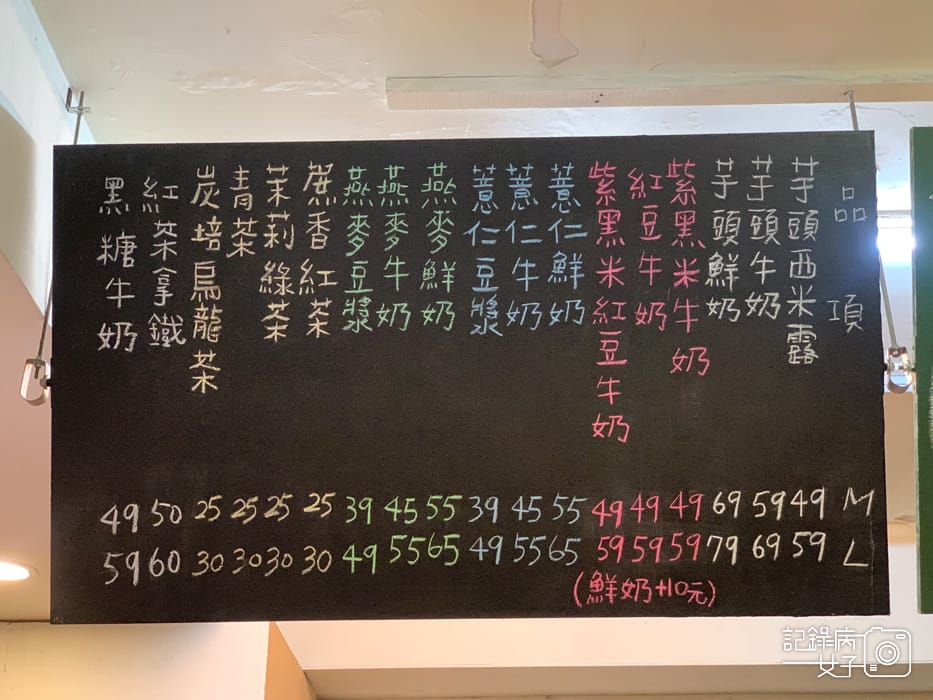 品項 M L
芋頭西米露 49 59
芋頭牛奶 59 69
芋頭鮮奶 69 79
紫黑米牛奶 49 59
紅豆牛奶 49 59
紫黑米紅豆牛奶 49 59
(鮮奶+10元)
薏仁鮮奶 55 65
薏仁牛奶 45 55
薏仁豆漿 39 49
燕麥鮮奶 55 65
燕麥牛奶 45 55
燕麥豆漿 39 49
麃香紅茶 25 30
茉莉綠茶 25 30
青茶 25 30
炭培烏龍茶 25 30
紅茶拿鐵 50 60
黑糖牛奶 49 59
記錄病女子